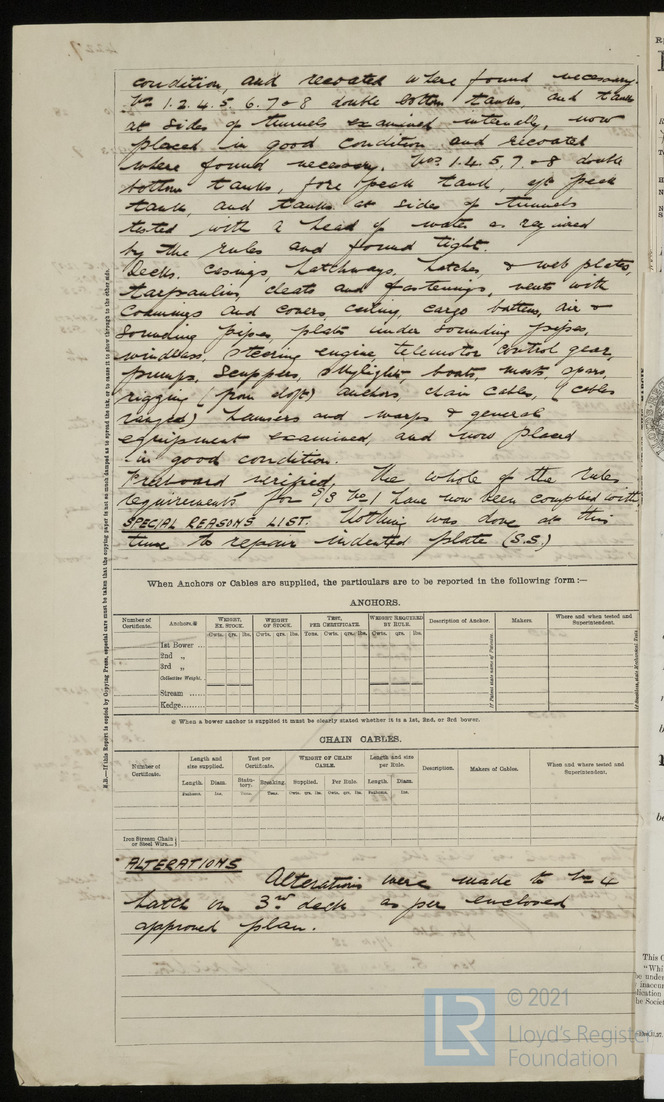 condition, and recoated where found necessary.
Nos 1. 2. 4. 5. 6. 7 & 8 double bottom tanks, and tanks
at sides of tunnels examined internally, now
placed in good condition and recoated
where found necessary. Nos 1. 4. 5. 7. & 8 double
bottom tanks, fore peak tank, aft peak
tank, and tanks at sides of tunnels
tested with a head of water as required
by the rules and found tight.
Decks, casings, hatchways, hatches, & web plates,
tarpaulins, cleats and fastenings, vents with
coamings and covers, ceiling, cargo battens, air &
sounding pipes, plates under sounding pipes,
windlass, steering engine, telemotor control gear,
pumps, scuppers, skylights, boats, masts, spars,
rigging (from aloft) anchors, chain cables, (cables
ranged) hawsers and warps & general
equipment examined, and now placed
in good condition.
Freeboard verified, the whole of the rules
requirements for S/S No 1 have now been complied with
SPECIAL REASONS LIST. Nothing was done at this
time to repair indented plate (S.S.)
When Anchors or Cables are supplied, the particulars are to be reported in the following form :—
ANCHORS.
Number of Certificate. Anchors.@ WEIGHT, EX. STOCK. WEIGHT OF STOCK. TEST, PER CERTIFICATE. WEIGHT REQUIRED BY RULE. Description of Anchor. Makers. Where and when tested and Superintendent.
Cwts. qrs. lbs. Cwts. qrs. lbs. Tons. Cwts. qrs. lbs. Cwts. qrs. lbs.
1st Bower ...
2nd „
3rd „
Collective Weight.
Stream ......
Kedge.......
@ When a bower anchor is supplied it must be clearly stated whether it is a 1st, 2nd, or 3rd bower.
CHAIN CABLES.
Number of Certificate. Length and size supplied. Test per Certificate. WEIGHT OF CHAIN CABLE. Length and size per Rule. Description. Makers of Cables. When and where tested and Superintendent.
Length. Diam. Statutory. Breaking. Supplied. Per Rule. Length. Diam.
Fathoms. Ins. Tons. Tons. Cwts. qrs. lbs. Cwts. qrs. lbs. Fathoms. Ins.
Iron Stream Chain or Steel Wire...
ALTERATIONS
Alterations were made to No 4
hatch on 3rd deck as per enclosed
approved plan.
N.B.—If this Report is copied by Copying Press, especial care must be taken that the copying paper is not so much damped as to spread the ink, or to cause it to show through to the other side.
LR
© 2021
Lloyd's Register
Foundation